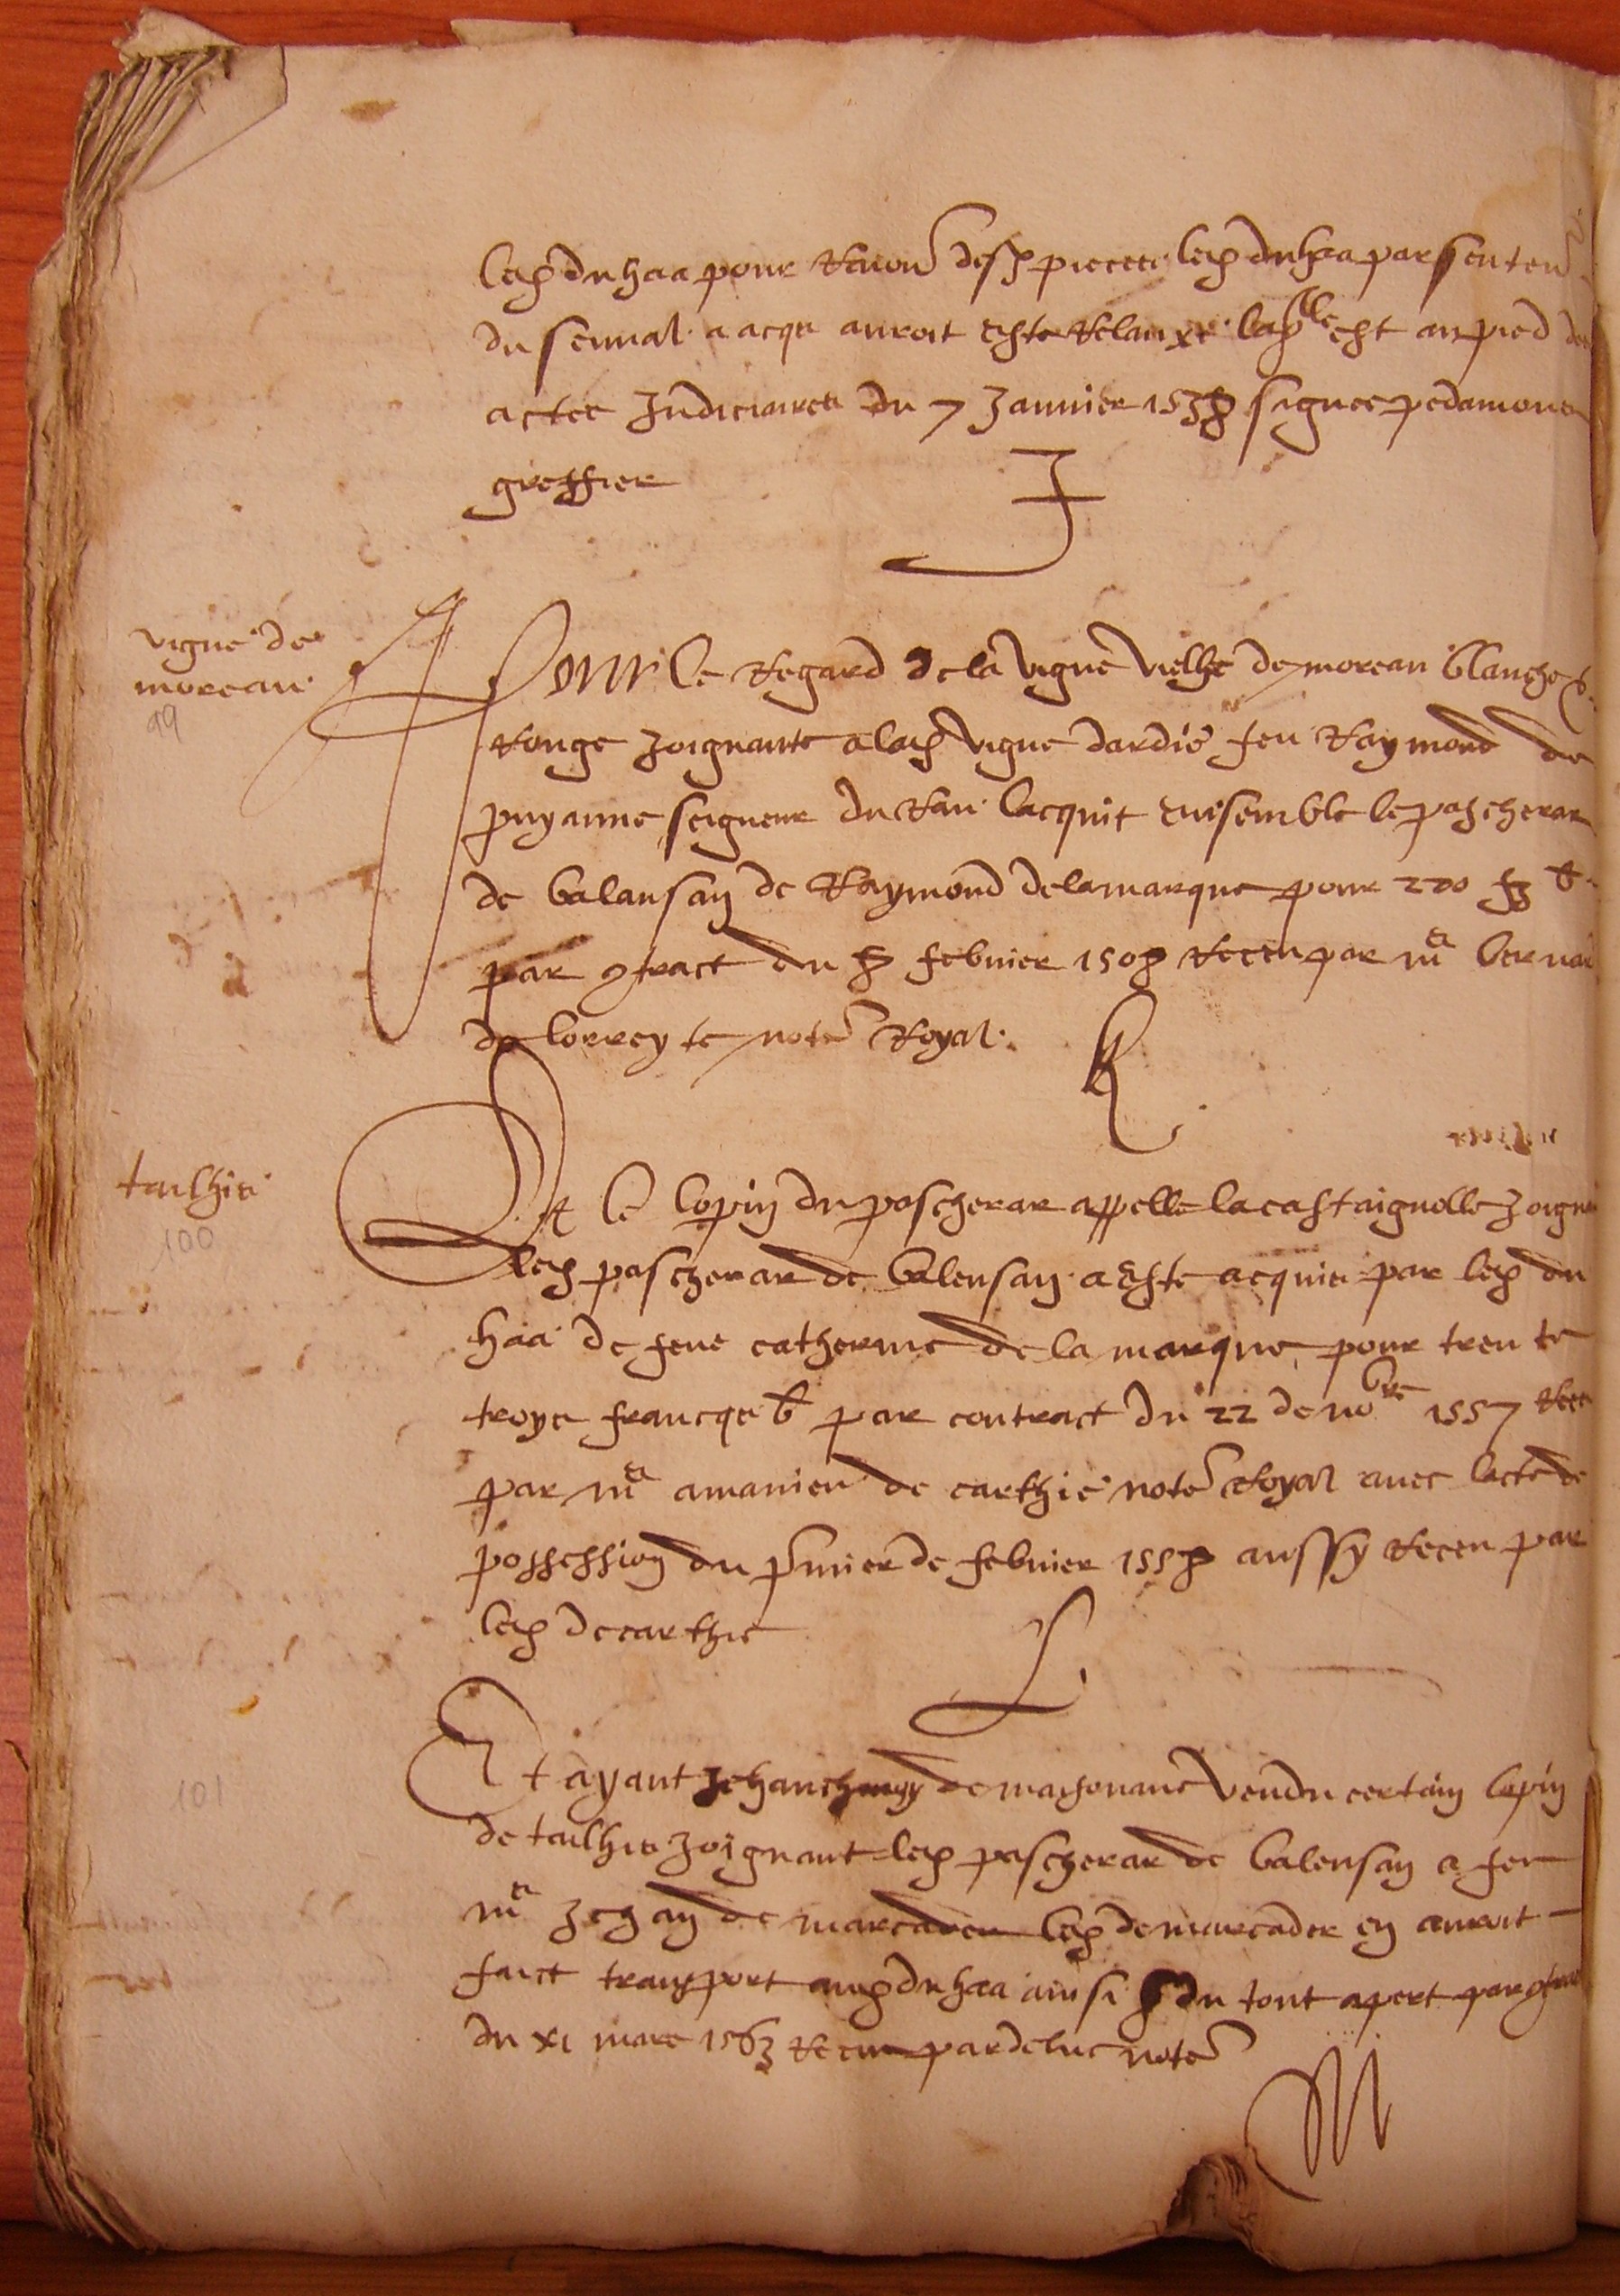 led du haa pour Raison desd pieces led du haa par senten
du sennal a acqs auroit este Relaxe laqlle est au pied des
actes Judiciaires du 7 Januier 1538 signee pedamons
greffier
J
vigne de
moreau
99
Pour le Regard de la vigne vielhe de moreau blanche &
Rouge Joignante a lad vigne dardie feu Raymond de
puyanne seigneur du Rau lacquit ensemble le pascherar
de balansan de Raymond de lamarque pour 220 fz b
par contract du 8 febvrier 1508 Receu par me bernad
de lorreyte note Royal
K
tailhis
100
Et le lopin du pascherar appelle la castaignolle Joignt
led pascherar de balensan a este acquis par led du
haa de feue catherine de la marque pour trente
troys francqs b par contract du 22 de nobre 1557 Rece
par me amanieu de carthie note Royal auec lacte de
possession du pmier de febvrier 1558 aussy Receu par
led de carthie
L
101
Et ayant Jehan de maysonnaue vendu certain lopin
de tailhis Joignant led pascherar de balensan a feu
me Jehan de marcader led de marcader en auroit
faict transport aud du haa ainsi du tout apert par contract
du xi mars 1563 Receu par de luc note
M